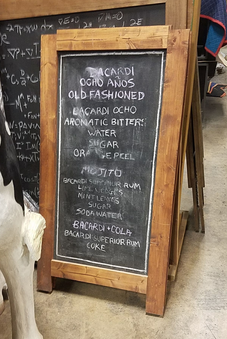 BACARDI
OCHO AÑOS
OLD FASHIONED
BACARDI OCHO
AROMATIC BITTERS
WATER
SUGAR
ORANGE PEEL
MOJITO
BACARDI SUPERIOR RUM
LIME WEDGES
MINT LEAVES
SUGAR
SODA WATER
BACARDI + COLA
BACARDI SUPERIOR RUM
COKE